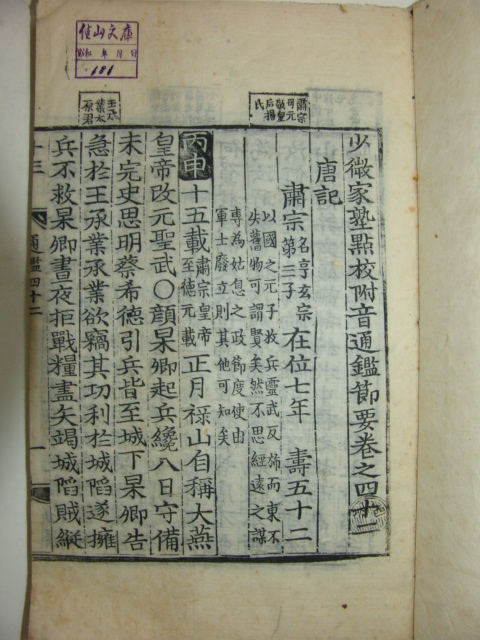 佳山文庫
年 月 日
181
少微家塾點校附音通鑑節要卷之四十二
唐記
肅宗 名亨玄宗第三子 在位七年 壽五十二
以國之元子 兵靈武反斾而東不
失舊物可謂賢矣然不思經遠之謀
專為姑息之政節度使由
軍士廢立則其他可知矣
丙申十五載 肅宗皇帝至德元載 正月祿山自稱大燕
皇帝改元聖武〇顔杲卿起兵纔八日守備
未完史思明蔡希德引兵皆至城下杲卿告
急於王承業承業欲竊其功利於城陷遂擁
兵不救杲卿晝夜拒戰糧盡矢竭城陷賊縱
通鑑四十二
一